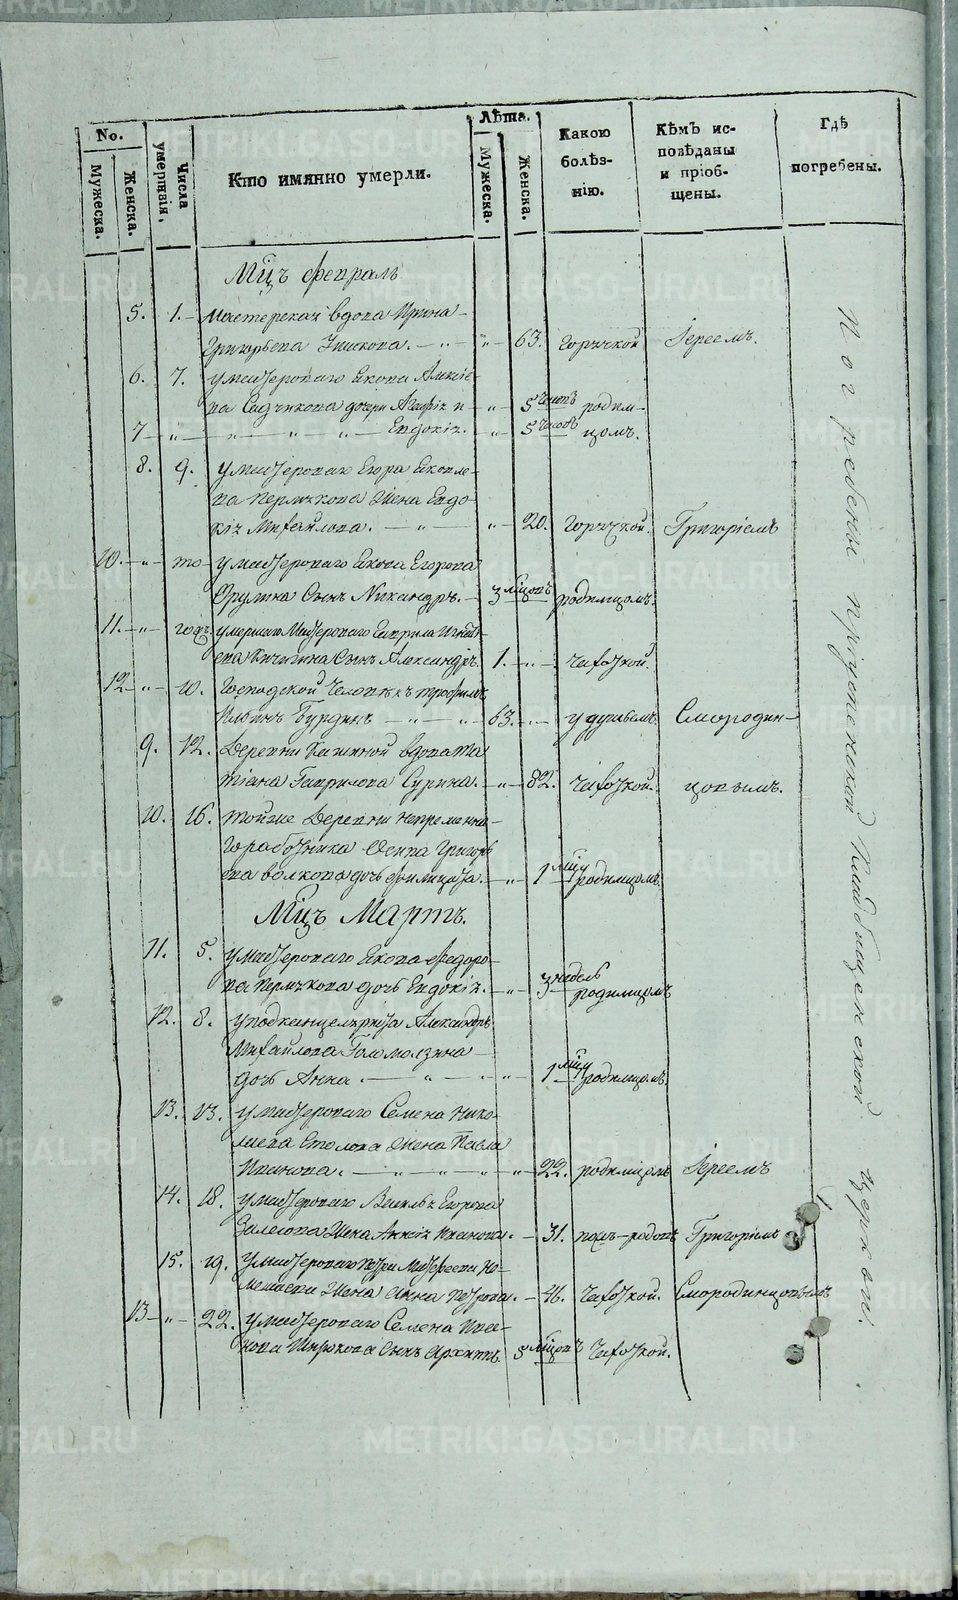 No.
Мужеска.
Женска.
Числа умертвія,
Кто имянно умерли.
Лѣта.
Мужеска.
Женска.
Какою болѣз-
нію.
Кѣмъ ис-
повѣданы
и пріоб-
щены.
Гдѣ
погребены.
Мцъ февраль
5. 1. Мастерская вдова Ирина
Григорьева 63. горячкой Іереемъ.
6. 7. у мастероваго Якова Алексѣе-
ва дочери и 5 часовъ родим-
7 Евдокія. 5 часовъ цомъ.
8. 9. у мастероваго Егора Яковле-
ва Пермякова жена Евдо-
кія Михайлова. 20. горячкой. Григоріемъ
10. то у мастероваго Якова Егорова
Фрулина сынъ Никандръ. 3 мцовъ родимцомъ.
11. тогожъ умершаго мастероваго Гаврила Игнать-
ева Кичигина сынъ Александръ. 1. чахоткой.
12 10. Господской человѣкъ Трофимъ
Бурдинъ 63. удушьемъ. Смородин-
9. 12. Деревни вдова Та-
тіана Гаврилова Сурина. 82. чахоткой. цовымъ.
10. 16. той же деревни непременна-
го работника Осипа Григорь-
ева Волкова дочь Филицата. 1 мцу родимцомъ.
Мцъ Мартъ.
11. 5. у мастероваго Якова Федоро-
ва Пермякова дочь Евдокія. 3 недель родимцомъ
12. 8. у подканцеляриста Александръ
Михайлова Голомолзина
дочь Анна. 1 мцу родимцомъ.
13. 13. у мастероваго Семена Нико-
лаева жена Павла
Иванова. 22. родимцомъ Іереемъ
14. 18. у мастероваго Василья Егорова
жена Анисія Иванова. 31. Григоріемъ
15. 19. у мастероваго Петра
жена Анна Петрова. 46. чахоткой. Смородинцовымъ
13 22. у мастероваго Семена Ива-
нова Широкова сынъ Архиппъ. 5 мцовъ чахоткой.
Погребены при кладбищенской церкви.
METRIKI.GASO-URAL.RU